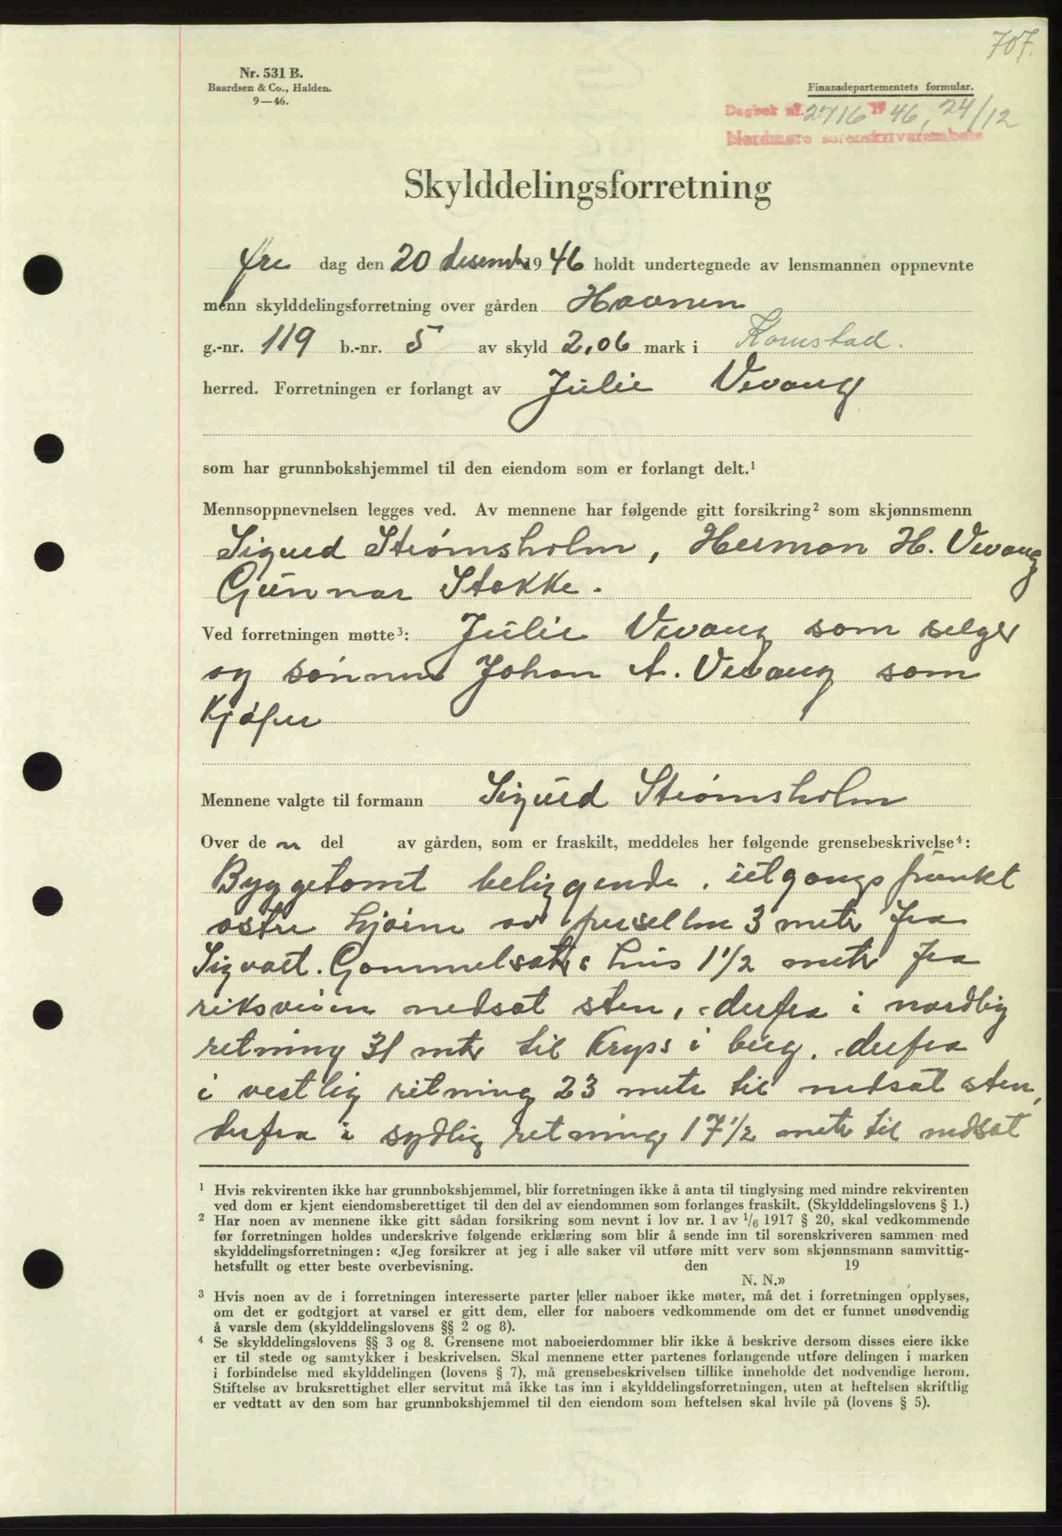 707.
Nr. 531 B.
Baardsen & Co., Halden.
9—46.
Finansdepartementets formular.
Dagbok nr. 2716 19 46, 24/12
Nordmøre sorenskriverembete
Skylddelingsforretning
Fre dag den 20 desember 19 46 holdt undertegnede av lensmannen oppnevnte
menn skylddelingsforretning over gården Haanen
g.-nr. 119 b.-nr. 5 av skyld 2,06 mark i Kornstad.
herred. Forretningen er forlangt av Julie Vevang
som har grunnbokshjemmel til den eiendom som er forlangt delt.¹
Mennsoppnevnelsen legges ved. Av mennene har følgende gitt forsikring² som skjønnsmenn
Sigurd Strømsholm, Herman H. Vevang
Gunnar Stokke.
Ved forretningen møtte³: Julie Vevang som selger
og sønnen Johan A. Vevang som
kjøper
Mennene valgte til formann Sigurd Strømsholm
Over de n del av gården, som er fraskilt, meddeles her følgende grensebeskrivelse⁴:
Byggetomt beliggende, utgangspunkt
østre hjørne av parsellen 3 meter fra
Sigvart Gammelsæters hus 1 1/2 meter fra
riksveien nedsat sten, derfra i nordlig
retning 31 mtr til Kryss i berg, derfra
i vestlig retning 23 metr til nedsat sten,
derfra i sydlig retning 17 1/2 metr til nedsat
¹ Hvis rekvirenten ikke har grunnbokshjemmel, blir forretningen ikke å anta til tinglysing med mindre rekvirenten
ved dom er kjent eiendomsberettiget til den del av eiendommen som forlanges fraskilt. (Skylddelingslovens § 1.)
² Har noen av mennene ikke gitt sådan forsikring som nevnt i lov nr. 1 av 1/6 1917 § 20, skal vedkommende
før forretningen holdes underskrive følgende erklæring som blir å sende inn til sorenskriveren sammen med
skylddelingsforretningen: «Jeg forsikrer at jeg i alle saker vil utføre mitt verv som skjønnsmann samvittig-
hetsfullt og etter beste overbevisning. den 19
N. N.»
³ Hvis noen av de i forretningen interesserte parter (eller naboer ikke møter, må det i forretningen opplyses,
om det er godtgjort at varsel er gitt dem, eller for naboers vedkommende om det er funnet unødvendig
å varsle dem (skylddelingslovens §§ 2 og 8).
⁴ Se skylddelingslovens §§ 3 og 8. Grensene mot naboeierdommer blir ikke å beskrive dersom disses eiere ikke
er til stede og samtykker i beskrivelsen. Skal mennene etter partenes forlangende utføre delingen i marken
i forbindelse med skylddelingen (lovens § 7), må grensebeskrivelsen tillike inneholde det nødvendige herom.
Stiftelse av bruksrettighet eller servitut må ikke tas inn i skylddelingsforretningen, uten at heftelsen skriftlig
er vedtatt av den som har grunnbokshjemmel til den eiendom som heftelsen skal hvile på (lovens § 5).